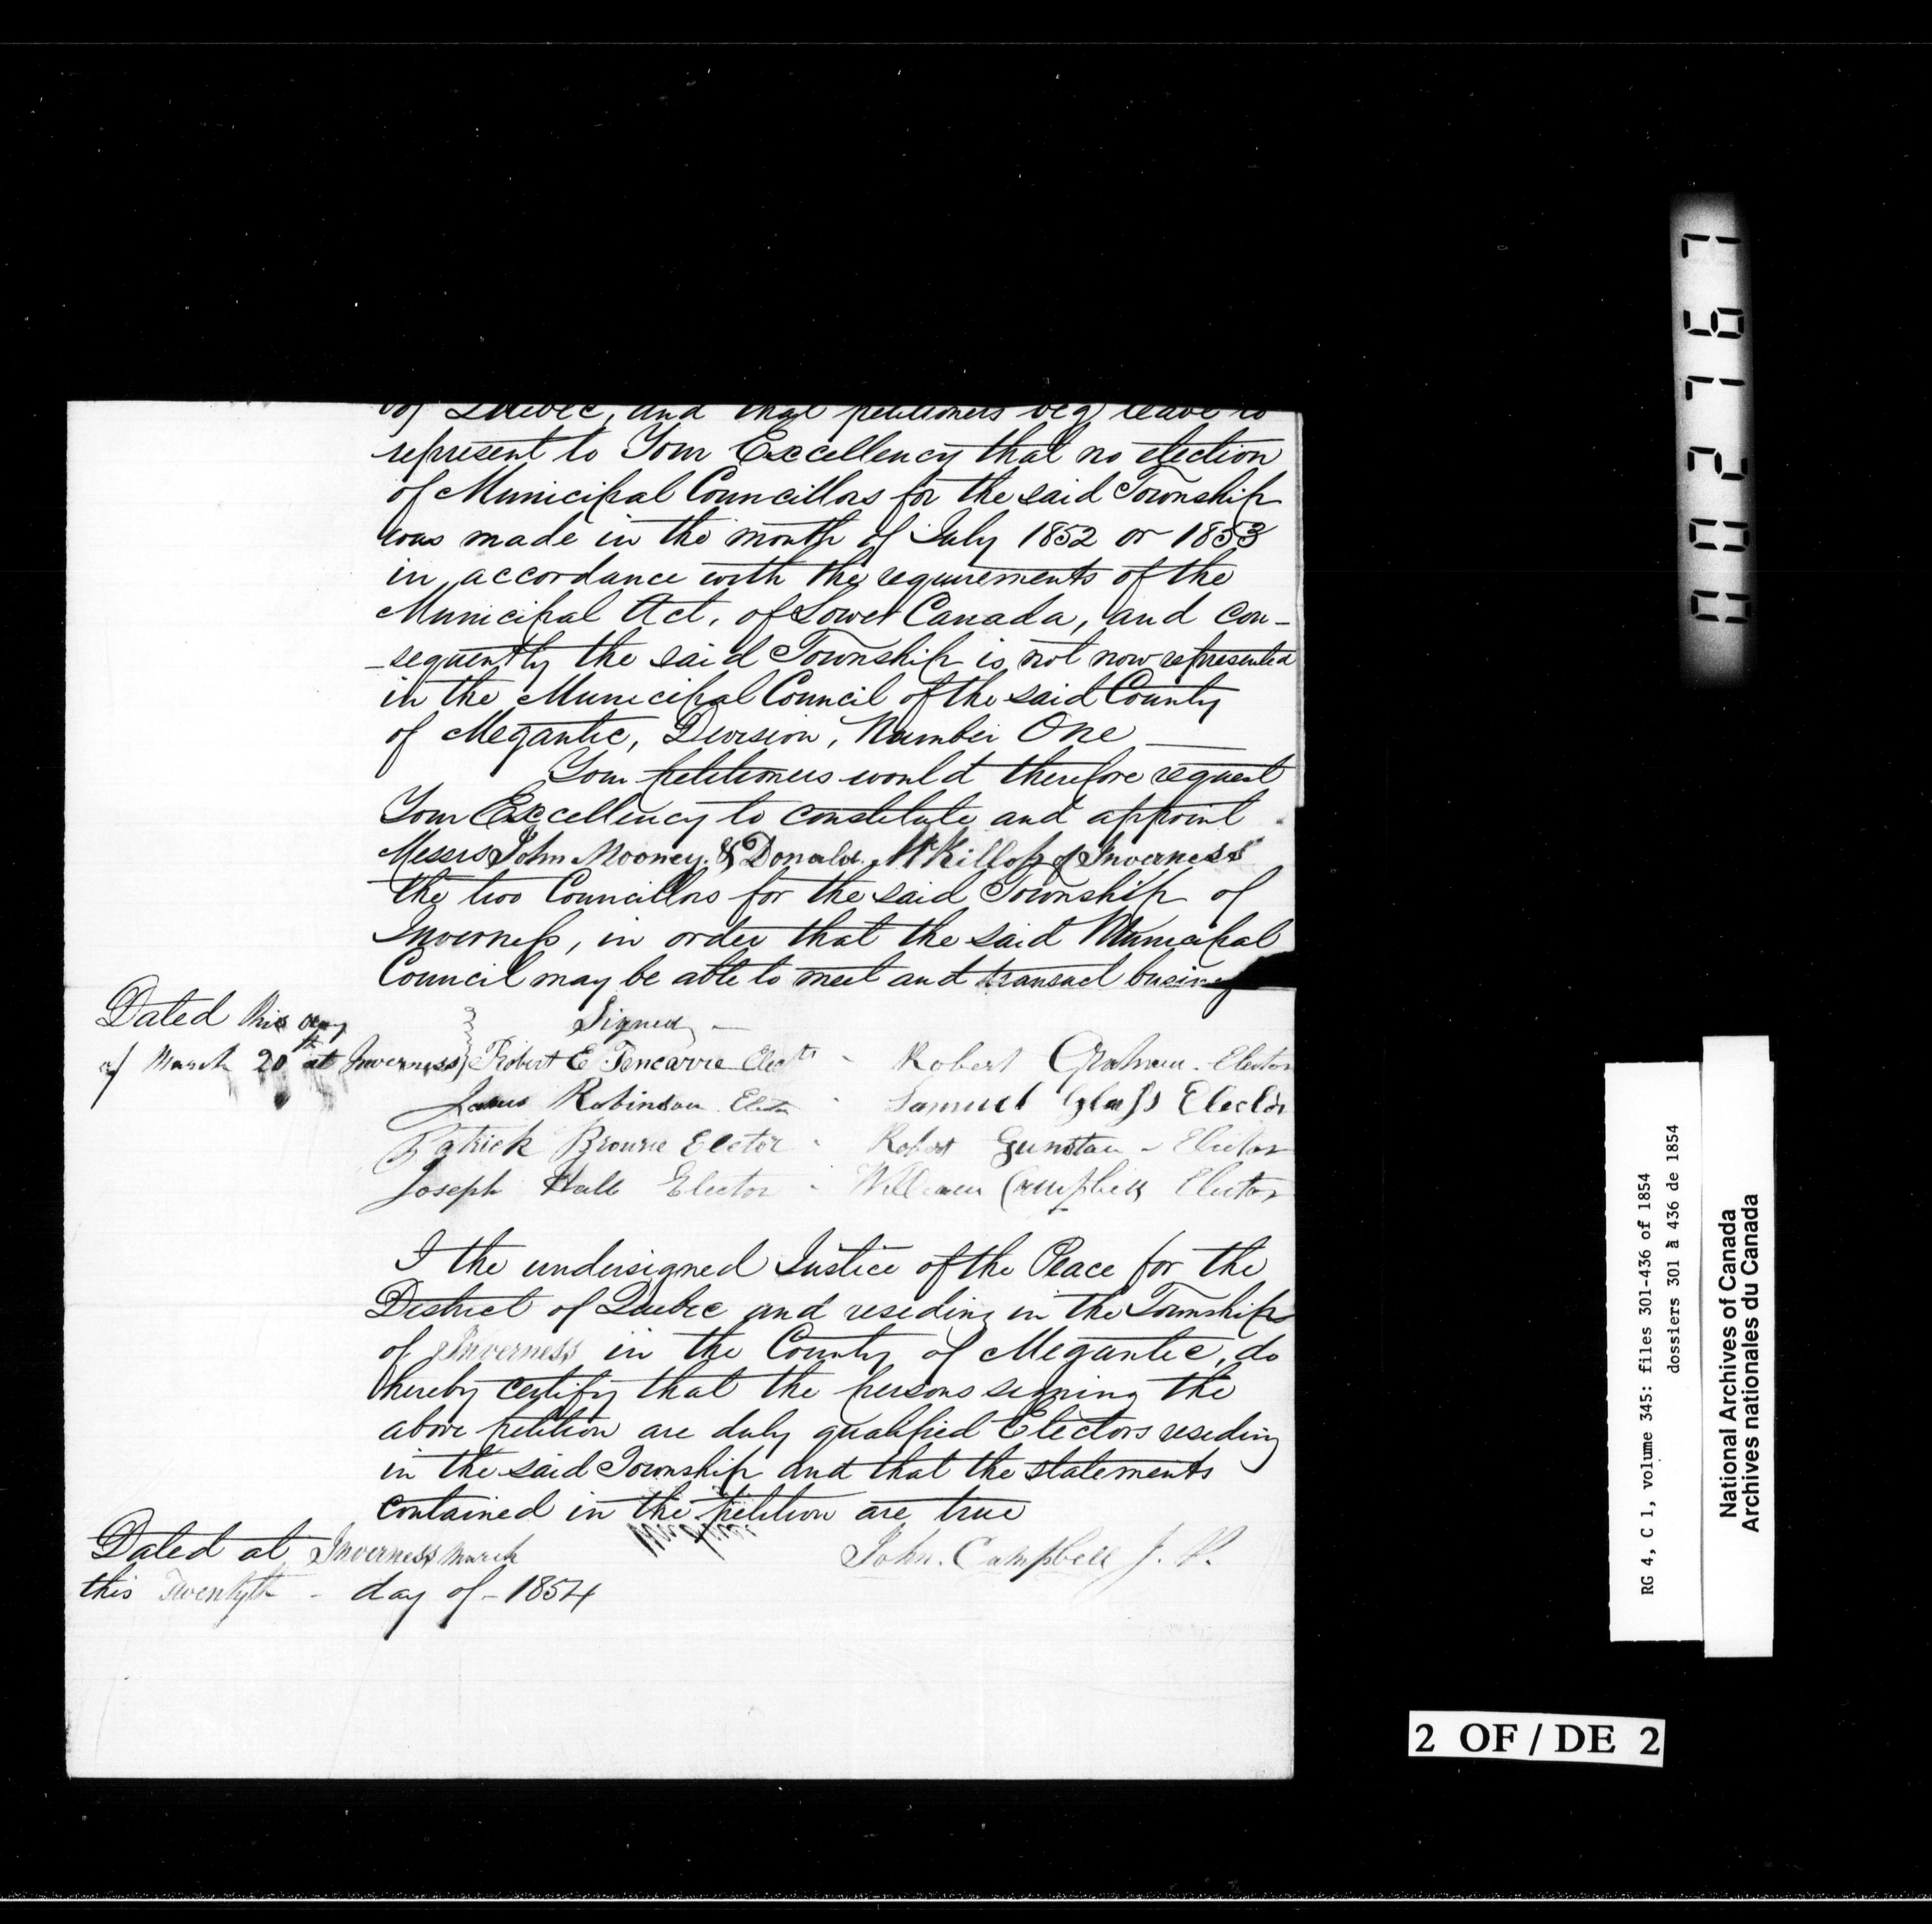 of Quebec, and that petitioners beg leave to
represent to Your Excellency that no election
of Municipal Councillors for the said Township
was made in the month of July 1852 or 1853
in accordance with the requirements of the
Municipal Act, of Lower Canada, and con-
-sequently the said Township is not now represented
in the Municipal Council of the said County
of Megantic, Division, Number One
Your petitioners would therefore request
Your Excellency to constitute and appoint
Messrs John Mooney & Donald McKillop of Inverness
the two Councillors for the said Township of
Inverness, in order that the said Municipal
Council may be able to meet and transact business
Dated this day
of March 20th at Inverness
Signed
Robert E Elect - Robert Graham - Elector
James Robinson Elector - Samuel Glass Elector
Patrick Browne Elector - Robert Elector
Joseph Hall Elector - William Campbell Elector
I the undersigned Justice of the Peace for the
District of Quebec and residing in the Township
of Inverness in the County of Megantic, do
hereby certify that the persons signing the
above petition are duly qualified Electors residing
in the said Township and that the statements
contained in the petition are true
Dated at Inverness March
this Twentyth - day of - 1854
John. Campbell J. P.
002767
RG 4, C 1, volume 345: files 301-436 of 1854
dossiers 301 à 436 de 1854
National Archives of Canada
Archives nationales du Canada
2 OF / DE 2